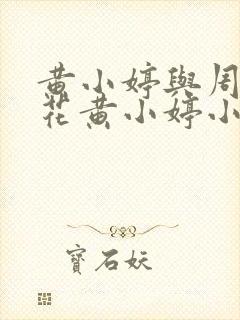 黄小婷與周
花黄小婷小
寶石妖